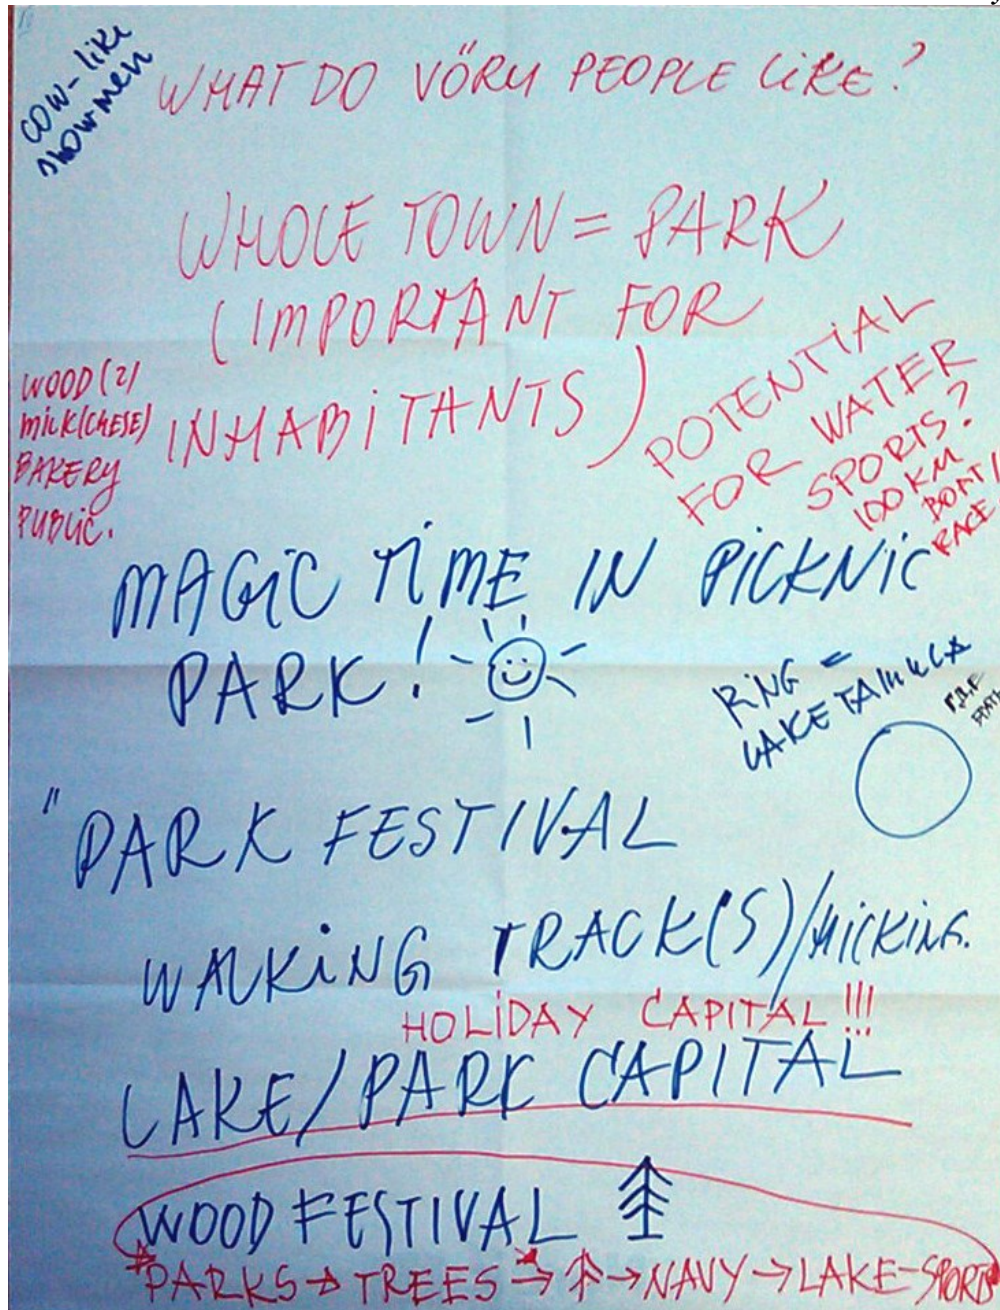 cow-like
showmen
WHAT DO VŐRU PEOPLE LIKE?
WHOLE TOWN = PARK
(IMPORTANT FOR
INHABITANTS)
WOOD (2)
MILK (CHESE)
BAKERY
PUBLIC.
POTENTIAL
FOR WATER
SPORTS?
100 KM
BOAT/
RACE
MAGIC TIME IN PICKNIC
PARK!
RING =
LAKE TAMULA
"PARK FESTIVAL
WALKING TRACK(S)/HICKING.
HOLIDAY CAPITAL!!!
LAKE/PARK CAPITAL
WOOD FESTIVAL
*PARKS → TREES → → NAVY → LAKE-SPORTS